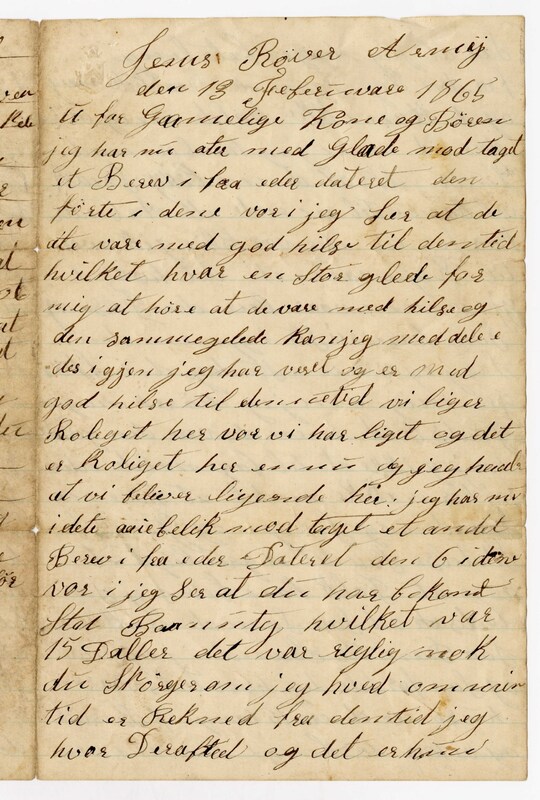 Jems Røver Armij
den 13 Feberuware 1865
u for Gaamelige Kone og Børen
jeg har nu ater med Glade mod taget
et Berev i fra eder dateret den
förte i dene vor i jeg Ser at de
ale vare med god hilse til den tid
hvilket hvar en Stor glede for
mig at höre at de vare med hilse og
den sammegelede Kan jeg med dele e
des igjen jeg har veret og er med
god hilse til denne tid vi liger
Roleget her vor vi har liget og det
er Roliget her en nu og jeg haab
at vi beliver ligende her. jeg har nu
i dete øaiebelik mod taget et andet
Berev i fra eder Dateret den 6 i den
vor i jeg Ser at du har bekomt
Stat Baaunty hvilket var
15 Daller det var rigtig nok
du Spörger om jeg hved om min
tid er Rekned fra den tid jeg
hvar Derafted og det er